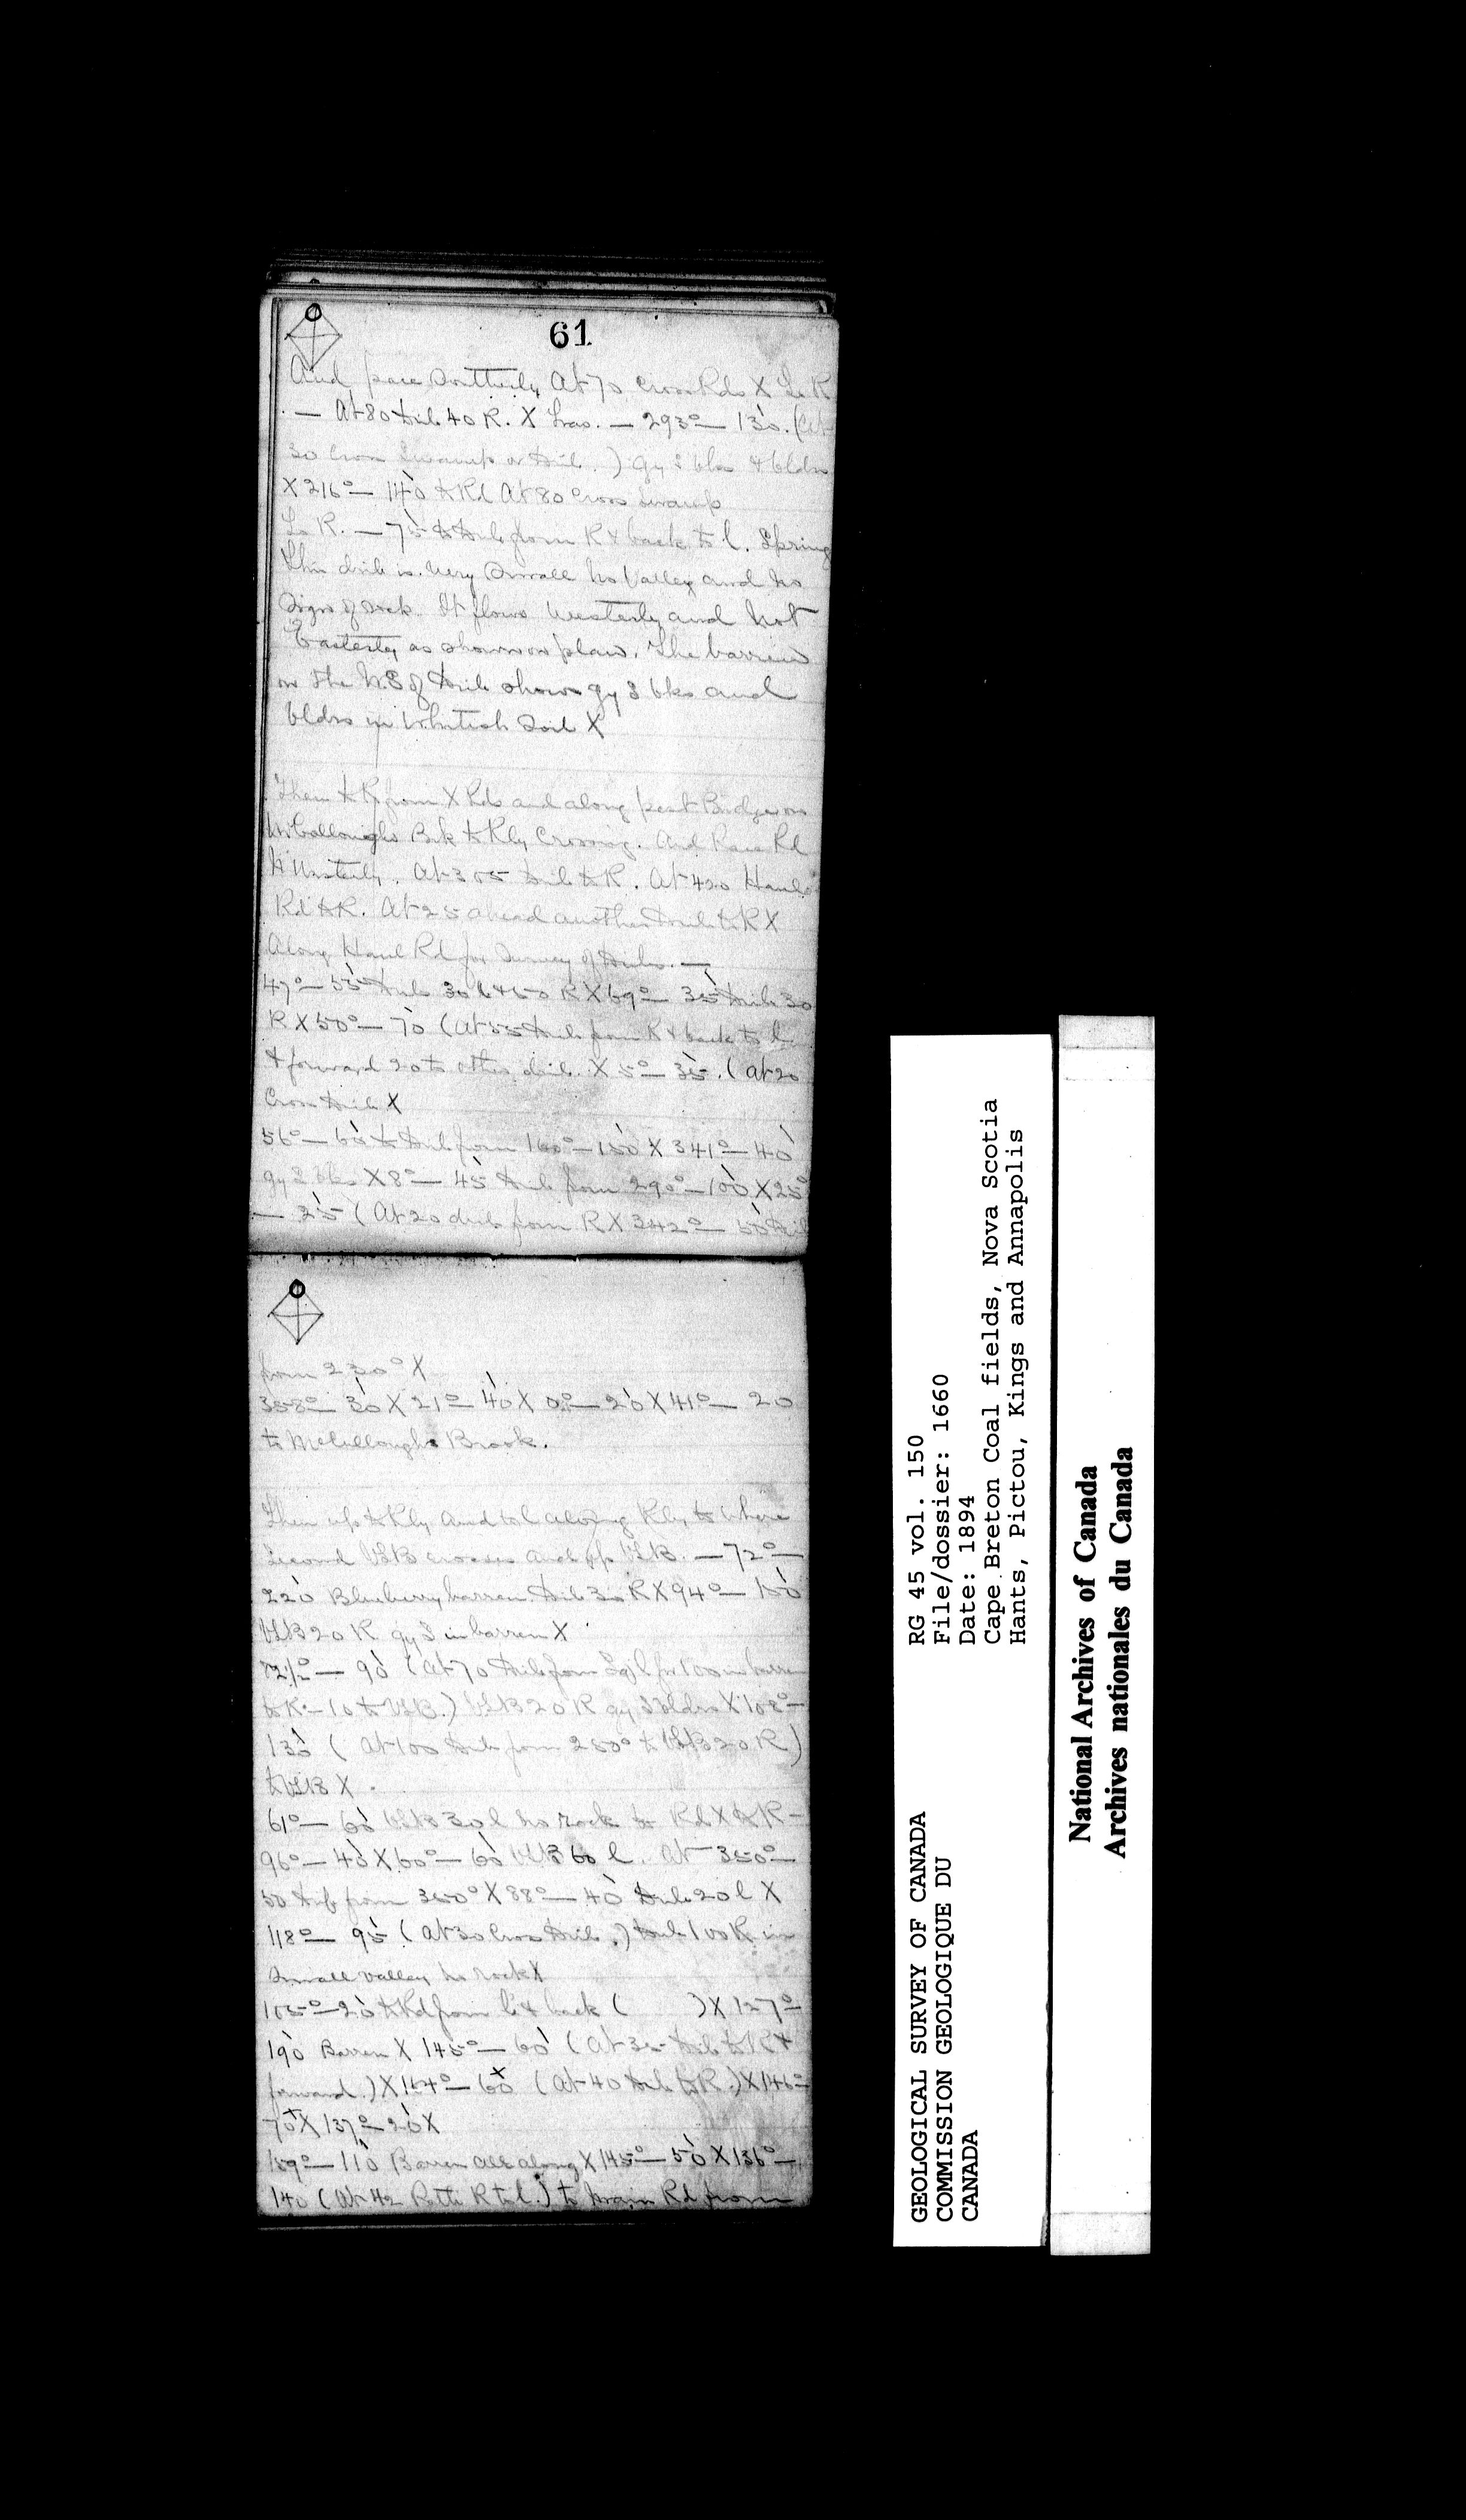 61
And pace Southerly At 70 Cross Rds X To R
— At 80 drib 40 R. X Tras. — 293° — 130. (At
30 Cross Swamp or drib.) gy S bks & bldrs
X 216° — 140 to Rd At 80 Cross Swamp
To R. — 75 to drib from R & back to l. Spring
This drib is very Small no Valley and no
Signs of rock. It flows Westerly and not
Easterly as shown on plan. The barren
on the N.S of drib shows gy S bks and
bldrs in Whitish Soil X
Then to R from X Rds and along past Bridge on
McCulloughs Bk to Rly Crossing. And Pace Rd
N Westerly. At 305 drib to R. At 420 Haul
Rd to R. At 25 ahead another drib to R X
Along Haul Rd for Survey of dribs. —
47° — 55 drib 30 l & 50 R X 69° — 35 drib 30
R X 50° — 70 (At 55 drib from R & back to l
& forward 20 to other drib. X 5° — 35. (At 20
Cross drib X
56° — 60 to drib from 160° — 150 X 341° — 40
gy S bks X 8° — 45 drib from 290° — 100 X 25°
— 35 (At 20 drib from R X 342° — 50 drib
from 230° X
358° — 30 X 21° — 40 X 0° — 20 X 41° — 20
to McCulloughs Brook.
Then up to Rly and to l along Rly to where
Second VLB crosses and up VLB. — 72° —
220 Blueberry barren. drib 30 R X 94° — 150
VLB 20 R gy S in barren X
72° — 90 (At 70 drib from l for 100 in barren
to R. — 10 to VLB.) VLB 20 R gy S bldrs X 108° —
130 (At 100 drib from 250° to VLB 20 R)
to VLB X
61° — 60 VLB 30 l no rock to Rd X to R —
96° — 40 X 60° — 60 VLB 60 l. At 350° —
50 drib from 350° X 88° — 40 drib 20 l X
118° — 95 (At 30 Cross drib.) drib 100 R in
Small valley no rock X
105° — 20 to Rd from l & back ( ) X 127° —
190 Barren X 145° — 60 (At 35 drib to R &
forward.) X 164° — 60 (At 40 drib to R.) X 146° —
70 X 137° — 20 X
159° — 110 Barren all along X 145° — 50 X 136° —
140 (At 42 Path R to l.) to main Rd from
GEOLOGICAL SURVEY OF CANADA
COMMISSION GEOLOGIQUE DU
CANADA
RG 45 vol. 150
File/dossier: 1660
Date: 1894
Cape Breton Coal fields, Nova Scotia
Hants, Pictou, Kings and Annapolis
National Archives of Canada
Archives nationales du Canada